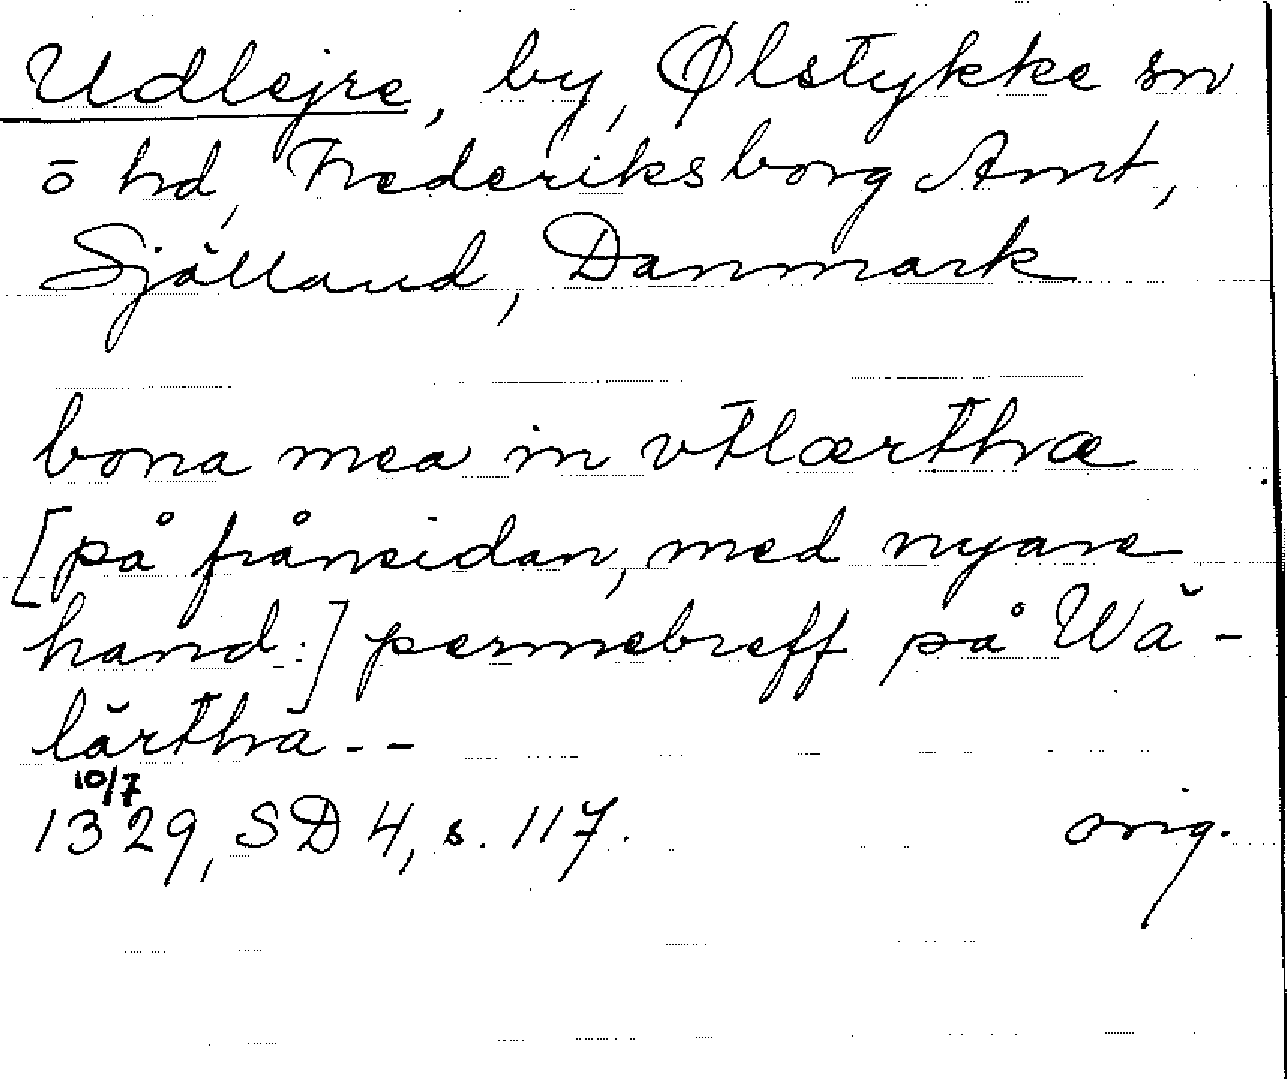 Udlejre, by, Ølstykke sn
o hd, Frederiksborg Amt,
Själland, Danmark
bona mea in vtlærthræ
[på frånsidan, med nyare
hand:] pennebreff på Wä-
lärthrä--
10/7
1329, SD 4, s. 117. orig.